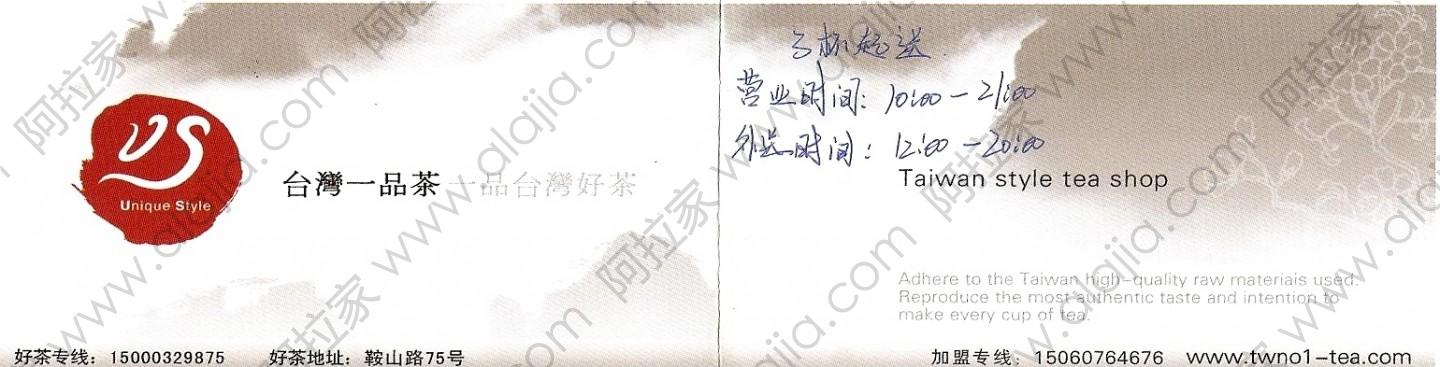 US
Unique Style
台灣一品茶 一品台灣好茶
好茶专线：15000329875 好茶地址：鞍山路75号
3杯起送
营业时间：10:00-21:00
外送时间：12:00-20:00
Taiwan style tea shop
Adhere to the Taiwan high-quality raw materiais used.
Reproduce the most authentic taste and intention to
make every cup of tea.
加盟专线：15060764676 www.twno1-tea.com
阿拉家 www.alajia.com